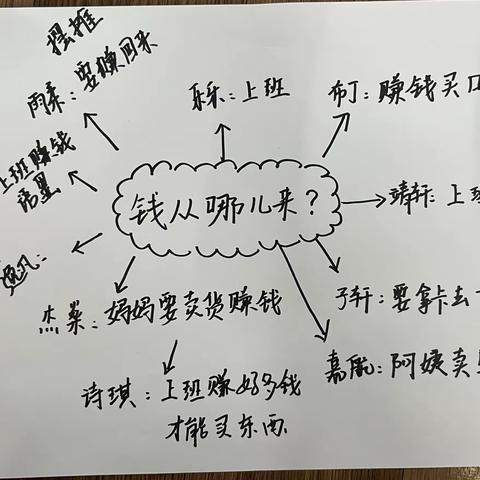 摆摊
雨柔：要赚回来
乐乐：上班
布丁：赚钱买
上班赚钱
语墨
钱从哪儿来？
靖轩：上
逸凡：
杰燊：妈妈要卖货赚钱
子轩：要拿卡去
嘉胤：阿姨卖
诗琪：上班赚好多钱
才能买东西